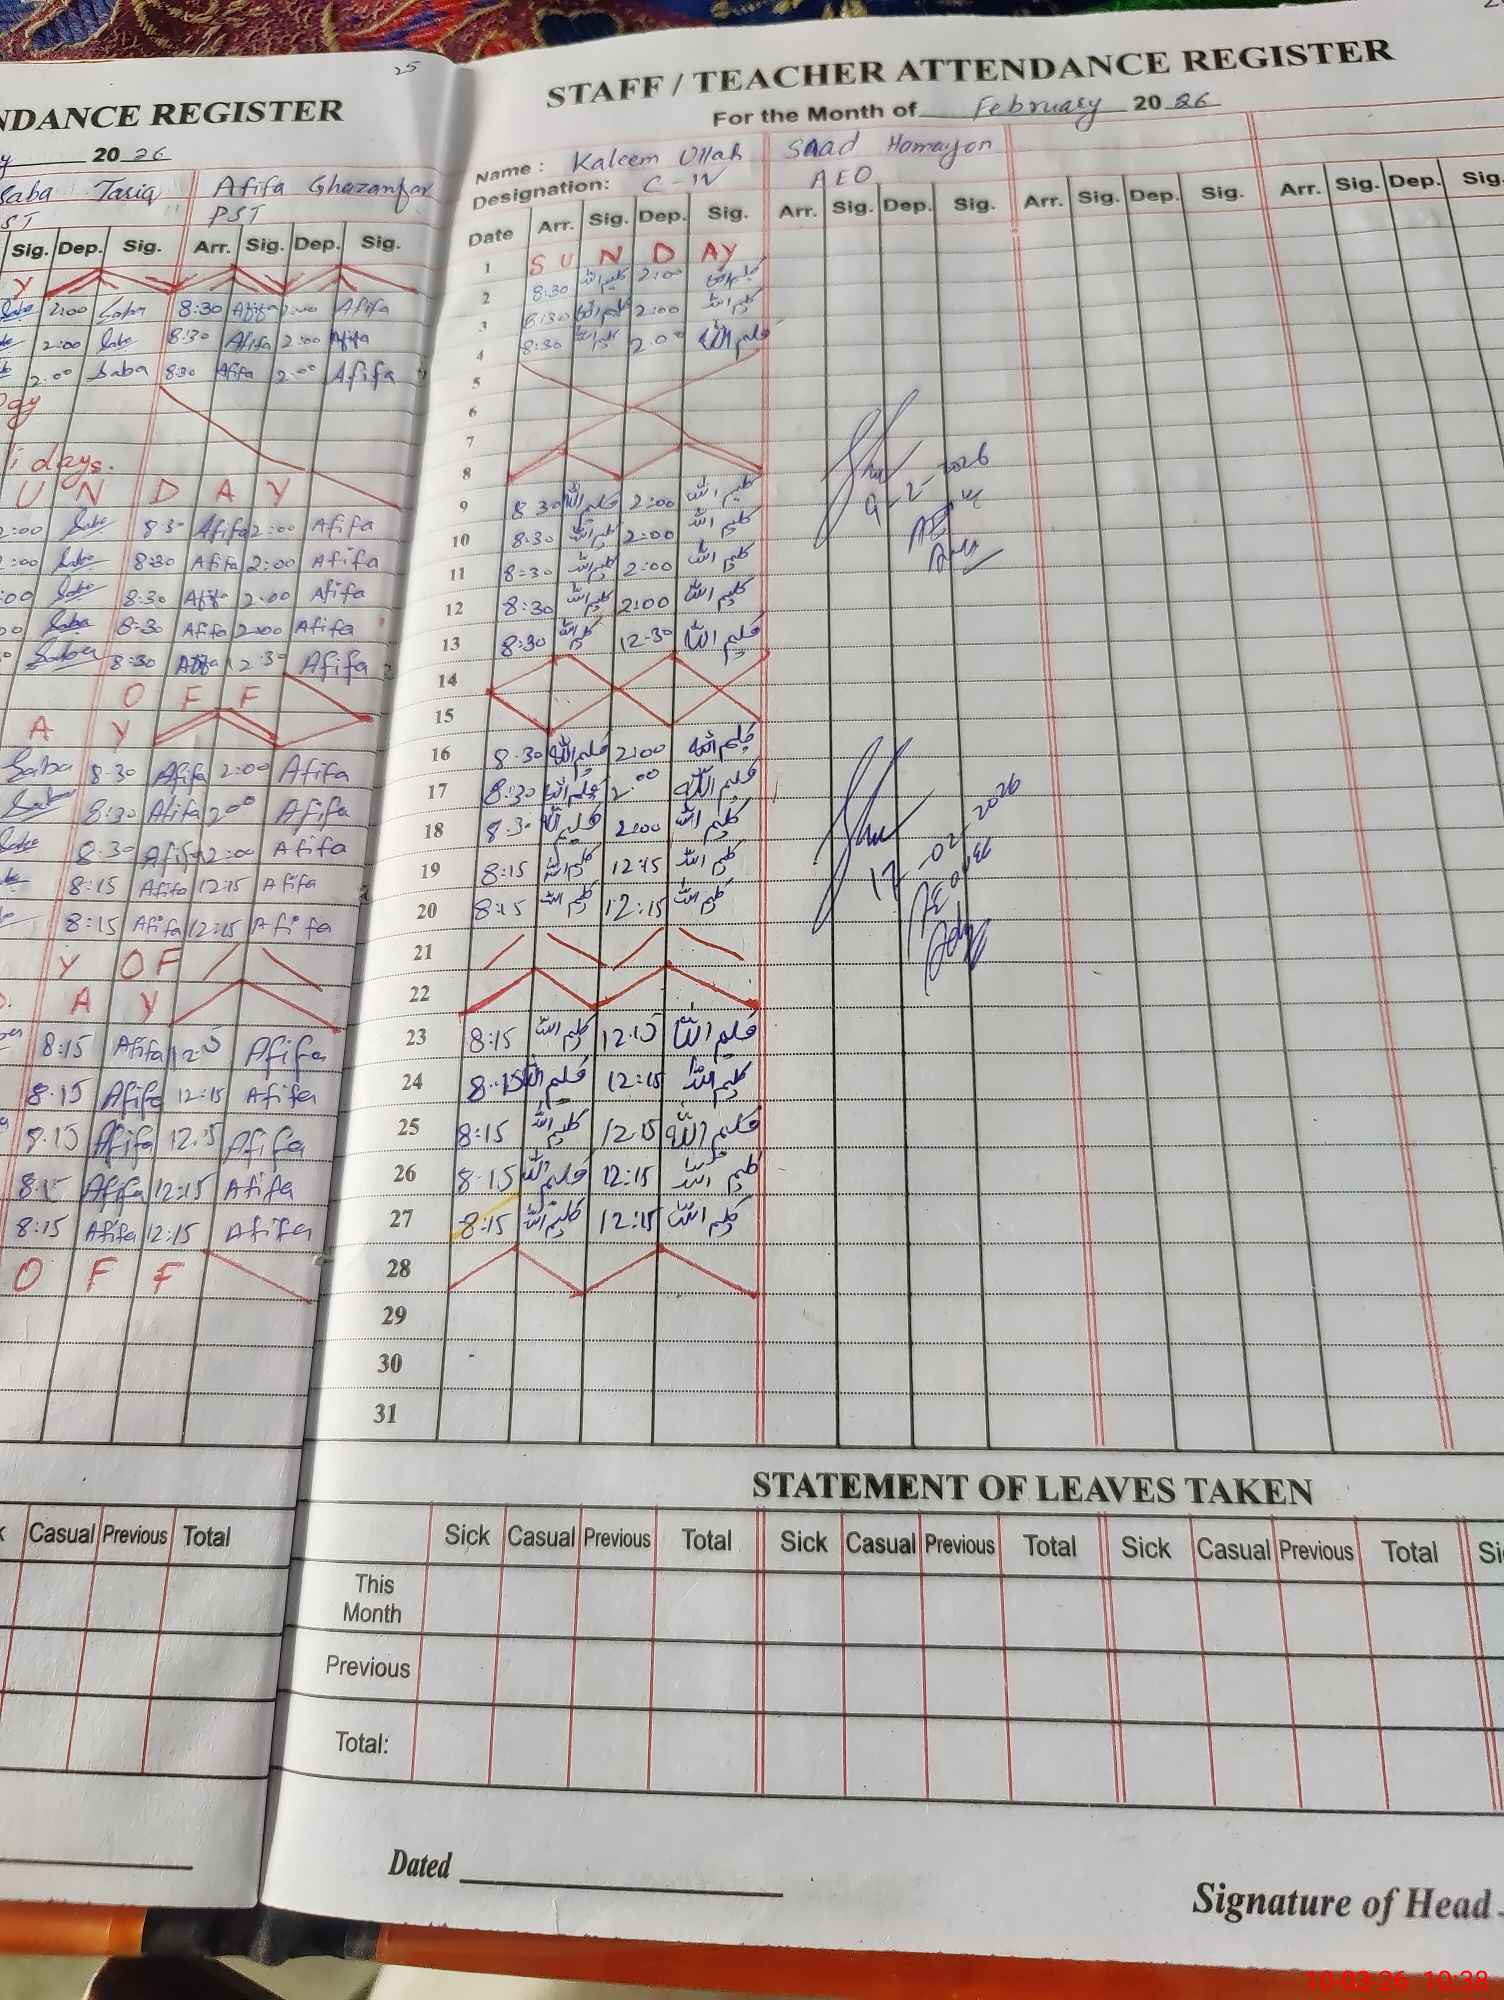 25
NDANCE REGISTER
y 20 26
Saba Tariq Afifa Ghazanfar
ST PST
Sig. Dep. Sig. Arr. Sig. Dep. Sig.
Y
Saba 2:00 Saba 8:30 Afifa 2:00 Afifa
2:00 Saba 8:30 Afifa 2:00 Afifa
2.00 Saba 830 Afifa 2.00 Afifa
ogy
i days.
U N D A Y
2:00 Saba 8:30 Afifa 2:00 Afifa
2:00 Saba 8:30 Afifa 2:00 Afifa
:00 Saba 8.30 Afifa 2.00 Afifa
00 Saba 8:30 Afifa 2:00 Afifa
Saba 8:30 Afifa 12:30 Afifa
O F F
A Y
Saba 8-30 Afifa 2:00 Afifa
Saba 8:30 Afifa 2:00 Afifa
Saba 8.30 Afifa 2:00 Afifa
8:15 Afifa 12:15 Afifa
8:15 Afifa 12:15 Afifa
Y OF
A Y
8:15 Afifa 12:15 Afifa
8.15 Afifa 12:15 Afifa
8.15 Afifa 12.15 Afifa
8:15 Afifa 12:15 Afifa
8:15 Afifa 12:15 Afifa
O F F
Casual Previous Total
STAFF / TEACHER ATTENDANCE REGISTER
For the Month of February 20 26
Name : Kaleem Ullah Saad Homayon
Designation: C-IV AEO
Date Arr. Sig. Dep. Sig. Arr. Sig. Dep. Sig. Arr. Sig. Dep. Sig. Arr. Sig. Dep. Sig.
1 S U N D AY
2 8:30 کلیم اللہ 2:00 کلیم اللہ
3 8:30 کلیم اللہ 2:00 کلیم اللہ
4 8:30 کلیم اللہ 2.00 کلیم اللہ
5
6
7
8
9 8 30 کلیم اللہ 2:00 کلیم اللہ 9-2-2026
10 8:30 کلیم اللہ 2:00 کلیم اللہ
11 8:30 کلیم اللہ 2:00 کلیم اللہ
12 8:30 کلیم اللہ 2:00 کلیم اللہ
13 8:30 کلیم اللہ 12-30 کلیم اللہ
14
15
16 8.30 کلیم اللہ 2:00 کلیم اللہ
17 8:30 کلیم اللہ 2.00 کلیم اللہ
18 8:30 کلیم اللہ 2:00 کلیم اللہ
19 8:15 کلیم اللہ 12:15 کلیم اللہ 17-02-2026
20 8:15 کلیم اللہ 12:15 کلیم اللہ
21
22
23 8:15 کلیم اللہ 12:15 کلیم اللہ
24 8:15 کلیم اللہ 12:15 کلیم اللہ
25 8:15 کلیم اللہ 12 15 کلیم اللہ
26 8.15 کلیم اللہ 12:15 کلیم اللہ
27 8:15 کلیم اللہ 12:15 کلیم اللہ
28
29
30
31
STATEMENT OF LEAVES TAKEN
Sick Casual Previous Total Sick Casual Previous Total Sick Casual Previous Total
This Month
Previous
Total:
Dated
Signature of Head
10-03-26 10:38